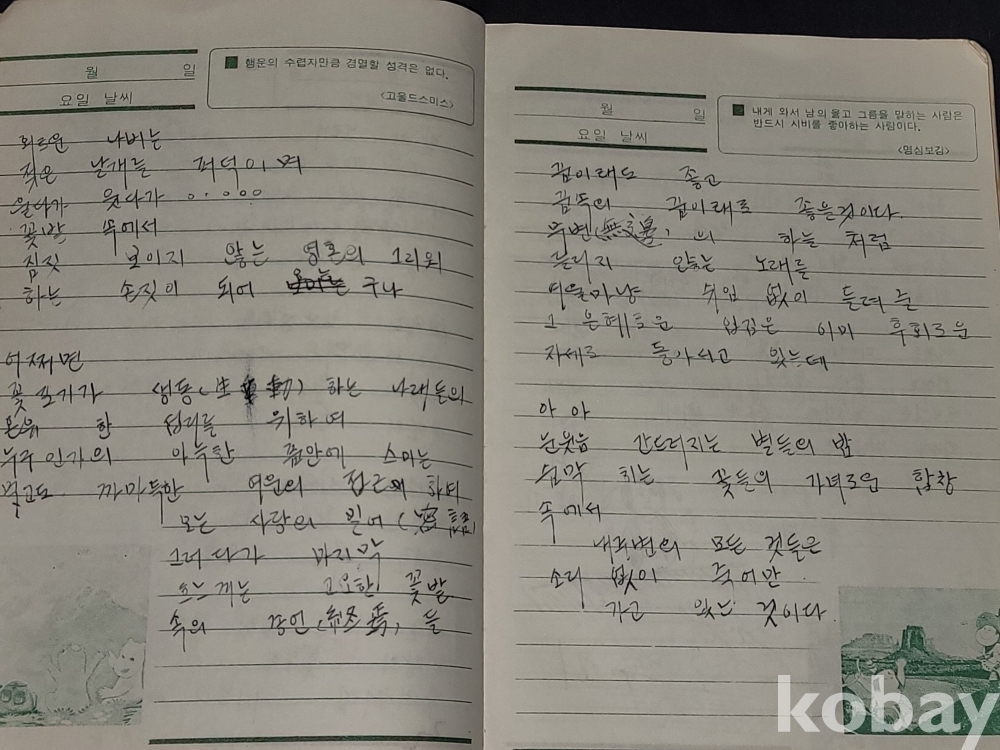 월 일
요일 날씨
행운의 수렵자만큼 경멸할 성격은 없다.
<고올드스미스>
외로운 나비는
젖은 날개를 퍼덕이며
울다가 웃다가
꽃밭 속에서
짐짓 보이지 않는 영혼의 그리워
하는 손짓이 되어 구나
어쩌면
꽃포기가 생동(生動)하는 나래들의
한 섭리를 위하여
누구인가의 아늑한 품안에 스미는
멀고도 까마득한 여원의 접근에 하여
모든 사랑의 밀어(密語)
그러다가 마지막
흐느끼는 고요한 꽃밭
속의 경언 들
월 일
요일 날씨
내게 와서 남의 옳고 그름을 말하는 사람은
반드시 시비를 좋아하는 사람이다.
<명심보감>
꿈이래도 좋고
꿈속의 꿈이래로 좋은것이다
무변(無邊)의 하늘 처럼
들리지 않는 노래를
여울마냥 쉬임 없이 들려 준
그 은혜로운 입김은 이미 후회로운
자세로 돌아서고 있는데
아 아
눈웃음 간드러지는 별들의 밤
섬막 치는 꽃들의 가녀로운 합창
속에서
내주변의 모든 것들은
소리 없이 죽어만
가고 있는 것이다
kobay